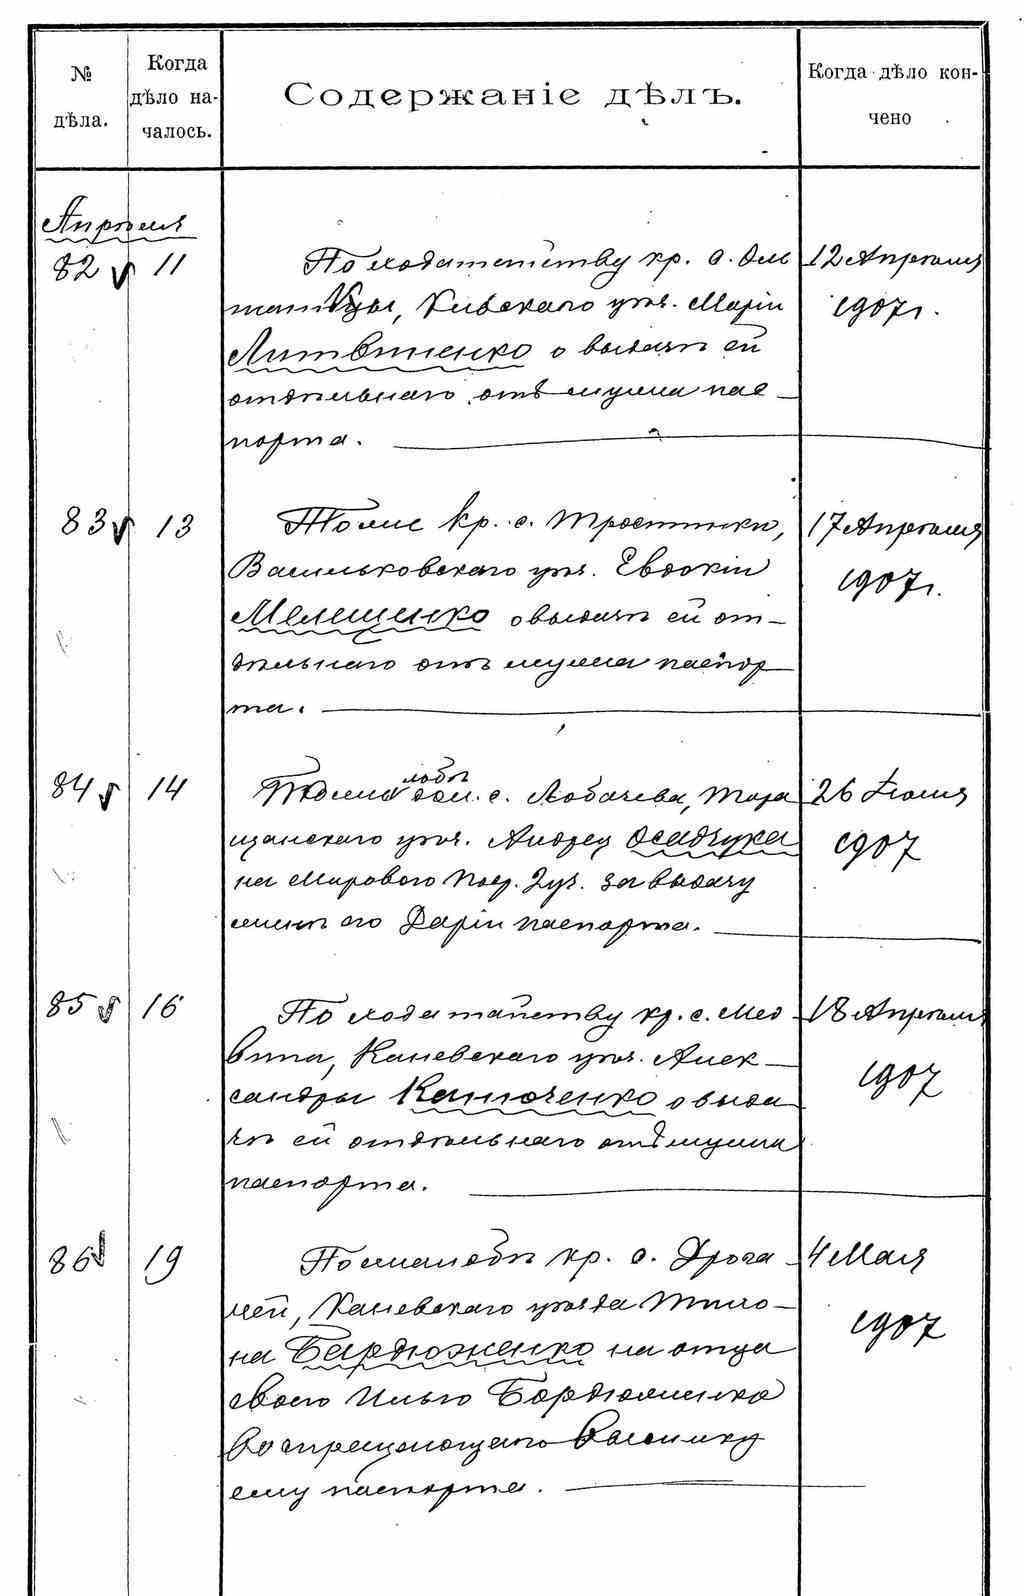 № дѣла.
Когда дѣло на-
чалось.
Содержаніе дѣлъ.
Когда дѣло кон-
чено
Апрѣля
82 11
По ходатайству кр. с. Оль
шаницы, Кіевскаго уѣз. Маріи
Литвиненко о выдачѣ ей
отдѣльнаго отъ мужа пас-
порта.
12 Апрѣля
1907 г.
83 13
Тоже кр. с. Тростинки,
Васильковскаго уѣз. Евдокіи
Мелещенко о выдачѣ ей от-
дѣльнаго отъ мужа паспор
та.
17 Апрѣля
1907 г.
84 14
с. Лобачева, Тара
щанскаго уѣз. Андрея Осадчука
на Мироваго Поср. 2 уч. за выдачу
женѣ его Даріи паспорта.
26 Іюня
1907
85 16
По ходатайству кр. с. Мед-
вина, Каневскаго уѣз. Алек-
сандры о выда
чѣ ей отдѣльнаго отъ мужа
паспорта.
18 Апрѣля
1907
86 19
По жалобѣ кр. с. Драга-
Каневскаго уѣзда
на Бардюженко на отца
своего Илью Бардюженко
воспрещающаго высылку
ему паспорта.
4 Мая
1907